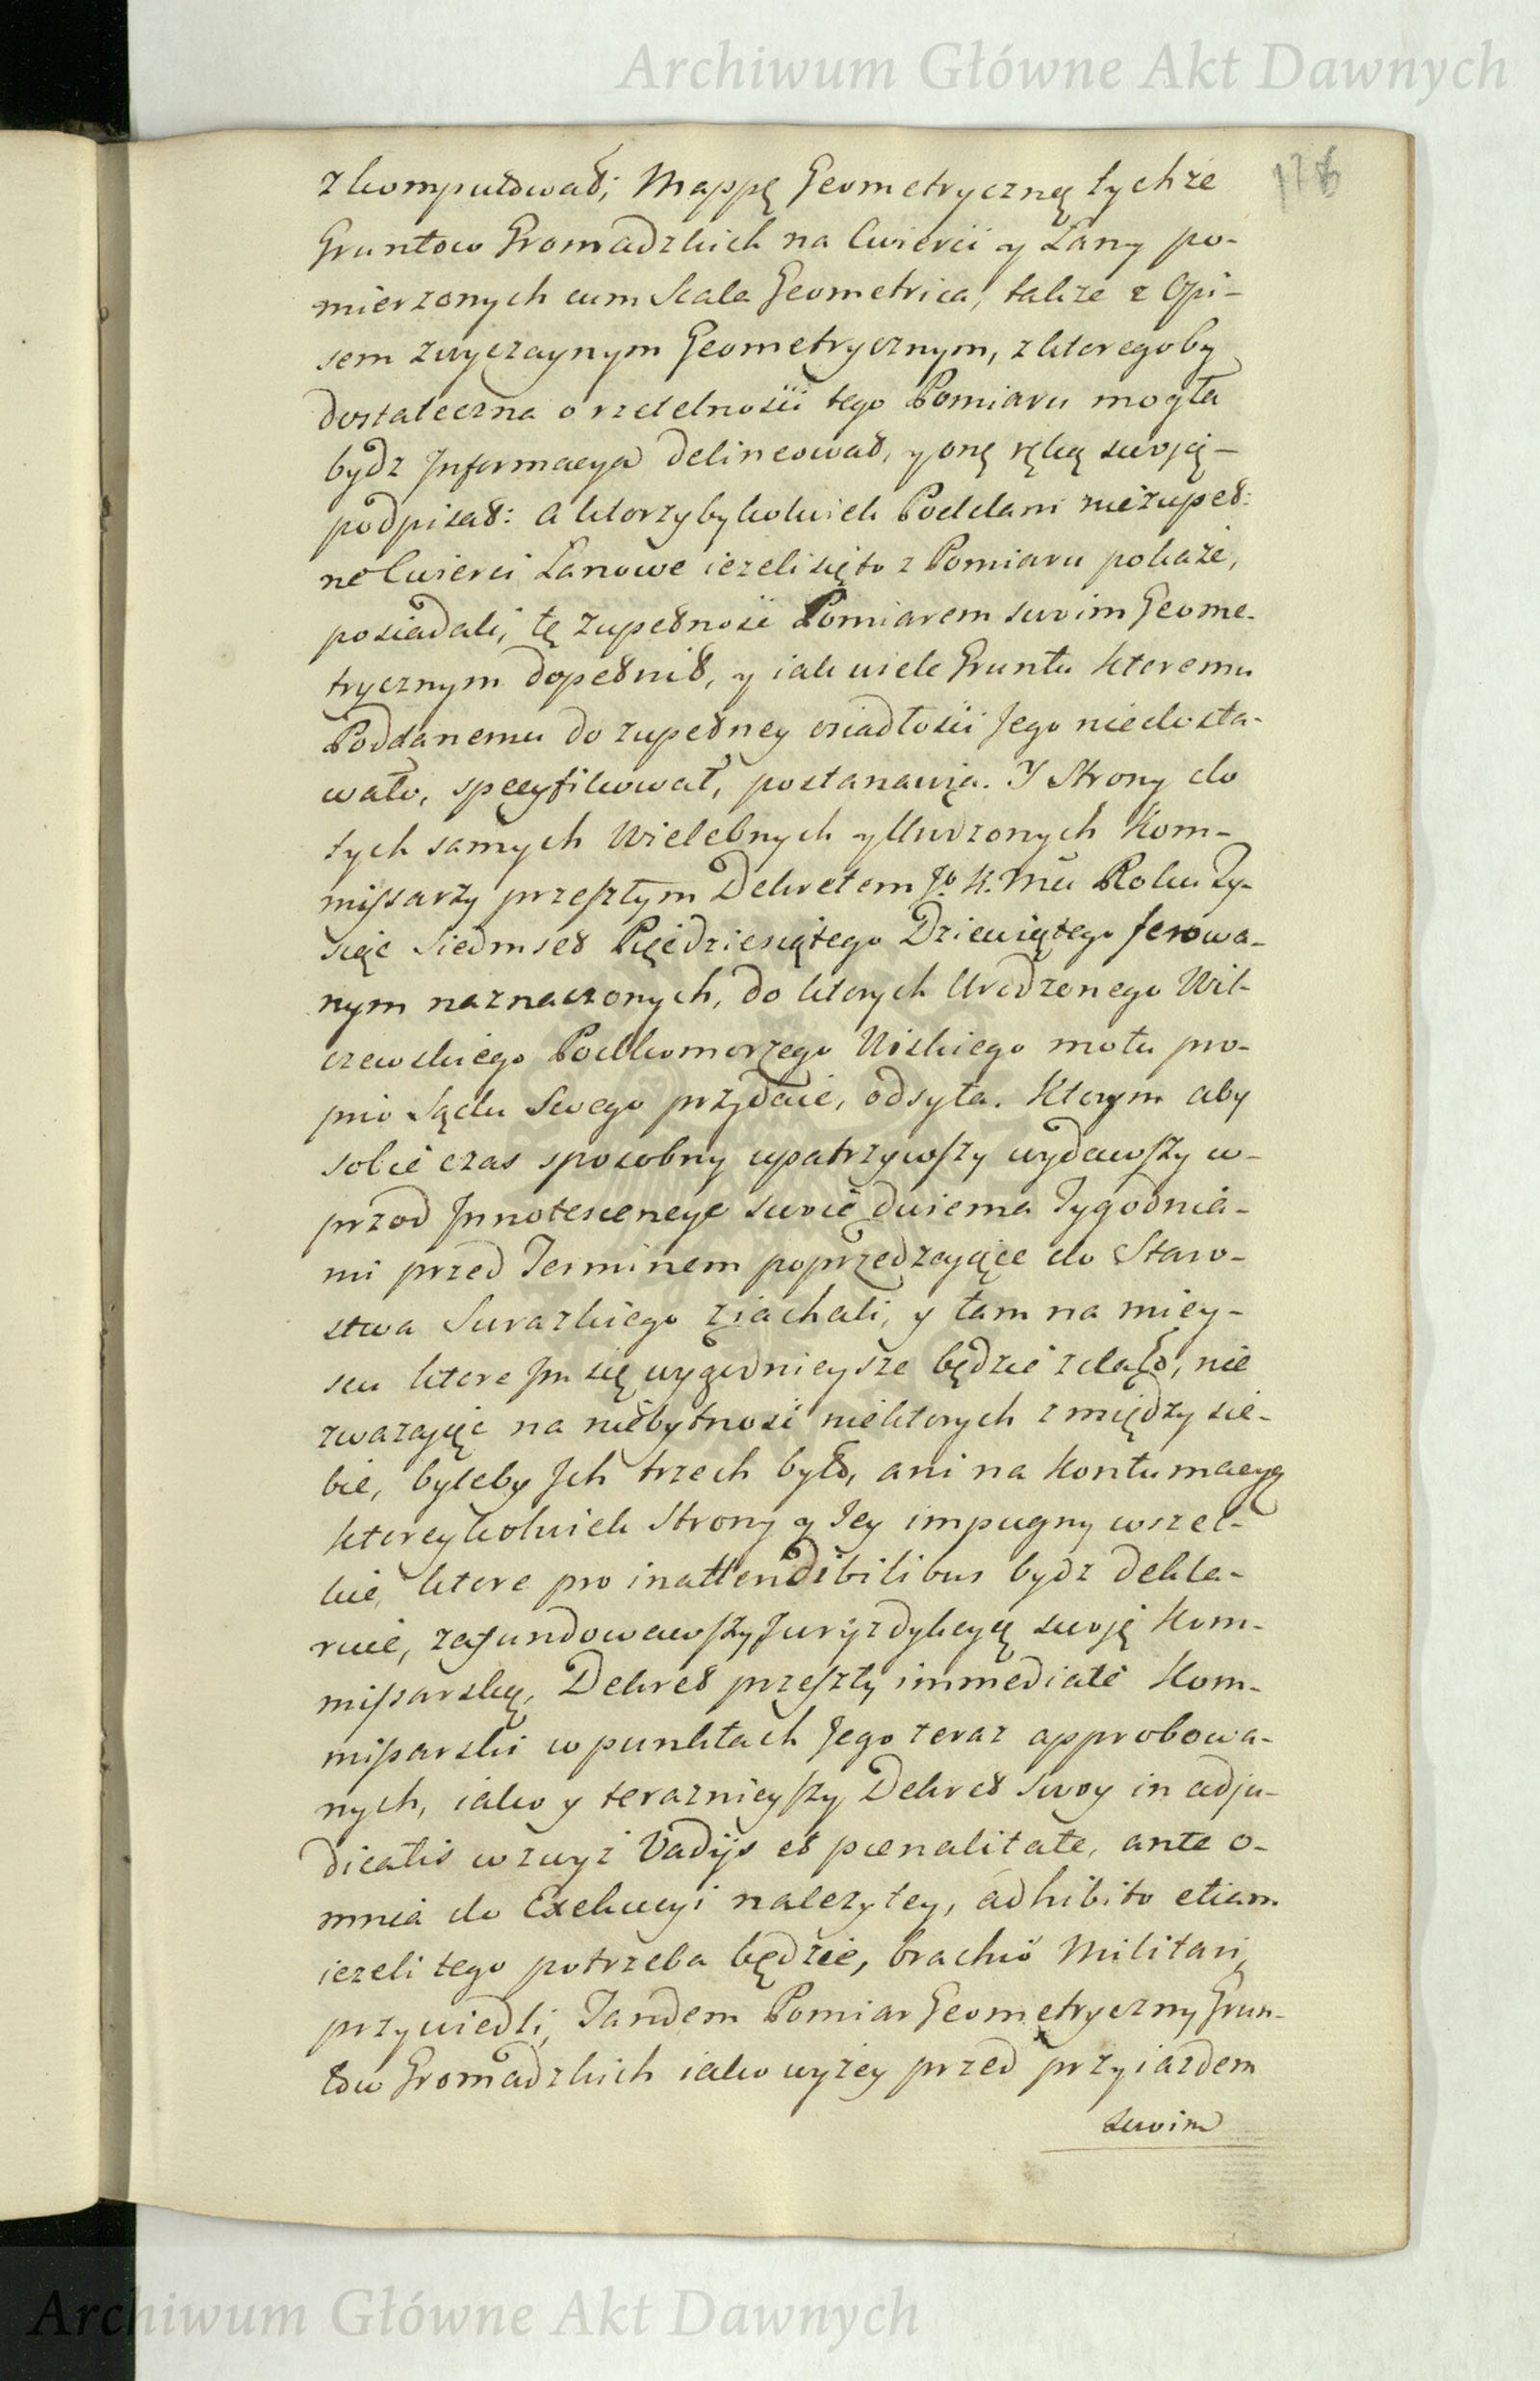 Archiwum Główne Akt Dawnych
176
zkomputował; Mappę Geometryczną tychże
Gruntow Gromadzkich na Cwierci y Łany po-
mierzonych cum Scala Geometrica, także z Opi-
sem zwyczaynym Geometrycznym, z ktoregoby
dostateczna o rzetelności tego Pomiaru mogła
bydz Informacya delineował, y onę ręką swoją-
podpisał: A ktorzybykolwiek Poddani niezupeł:
ne Cwierci Łanowe iezeli się to z Pomiaru pokaże,
posiadali, tę zupełność Pomiarem swoim Geome-
trycznym dopełnił, y iak wiele Gruntu ktoremu
Poddanemu do zupełney osiadłości Jego niedosta-
wało, specyfikował, postanawia. Y Strony do
tych samych Wielebnych y Urodzonych Kom-
missarzy przeszłym Dekretem J. K. Mci Roku Ty-
siąc Siedmset Pięcdziesiątego Dziewiątego ferowa-
nym naznaczonych, do ktorych Urodzonego Wil-
czewskiego Podkomorzego Wiskiego motu pro-
prio Sądu Swego przydaie, odsyła. Ktorym aby
sobie czas sposobny upatrzywszy wydawszy w-
przod Innotescencye swoie dwiema Tygodnia-
mi przed Terminem poprzedzaiące do Staro-
stwa Surazkiego ziachali, y tam na miey-
scu ktore Im się wygodnieysze będzie zdało, nie
zwazaiąc na niebytność niektorych z między sie-
bie, byleby Ich trzech było, ani na Kontumacyą
ktoreykolwiek Strony y Jey impugny wszel-
kie, ktore pro inattendibilibus bydz dekla-
ruie, zafundowawszy Juryzdykcyą swoję Kom-
missarską, Dekret przeszły immediate Kom-
missarski w punktach Jego teraz approbowa-
nych, iako y teraznieyszy Dekret Swoy in adju-
dicatis wzwyż Vadijs et poenalitate, ante o-
mnia do Exekucyi nalezytey, adhibito etiam
iezeli tego potrzeba będzie, brachio Militari
przywiedli, Tandem Pomiar Geometryczny Grun-
tow Gromadzkich iako wyżey przed przyiazdem
swoim
Archiwum Główne Akt Dawnych